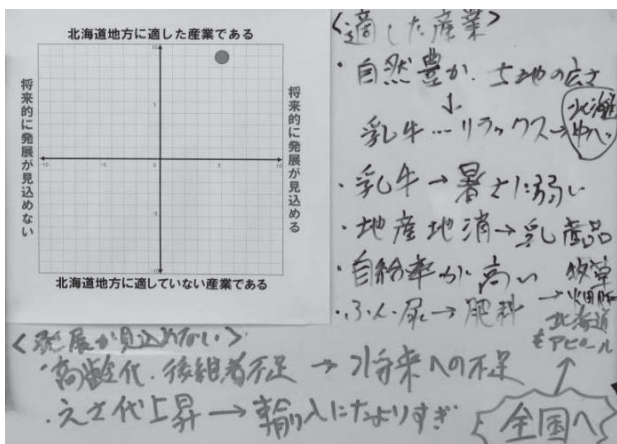 北海道地方に適した産業である
将来的に発展が見込めない
将来的に発展が見込める
北海道地方に適していない産業である
10
5
-10
-5
5
10
-5
-10
<適した産業>
・自然豊か、土地の広さ
↓
乳牛…リラックス→
・乳牛→暑さに弱い
・地産地消→乳産品
・自給率が高い
・ふん・尿→肥料→牧草
北海道
をアピール
↑
全国へ
<発展が見込めない>
・高齢化、後継者不足→将来への不足
・えさ代上昇→輸入にたよりすぎ